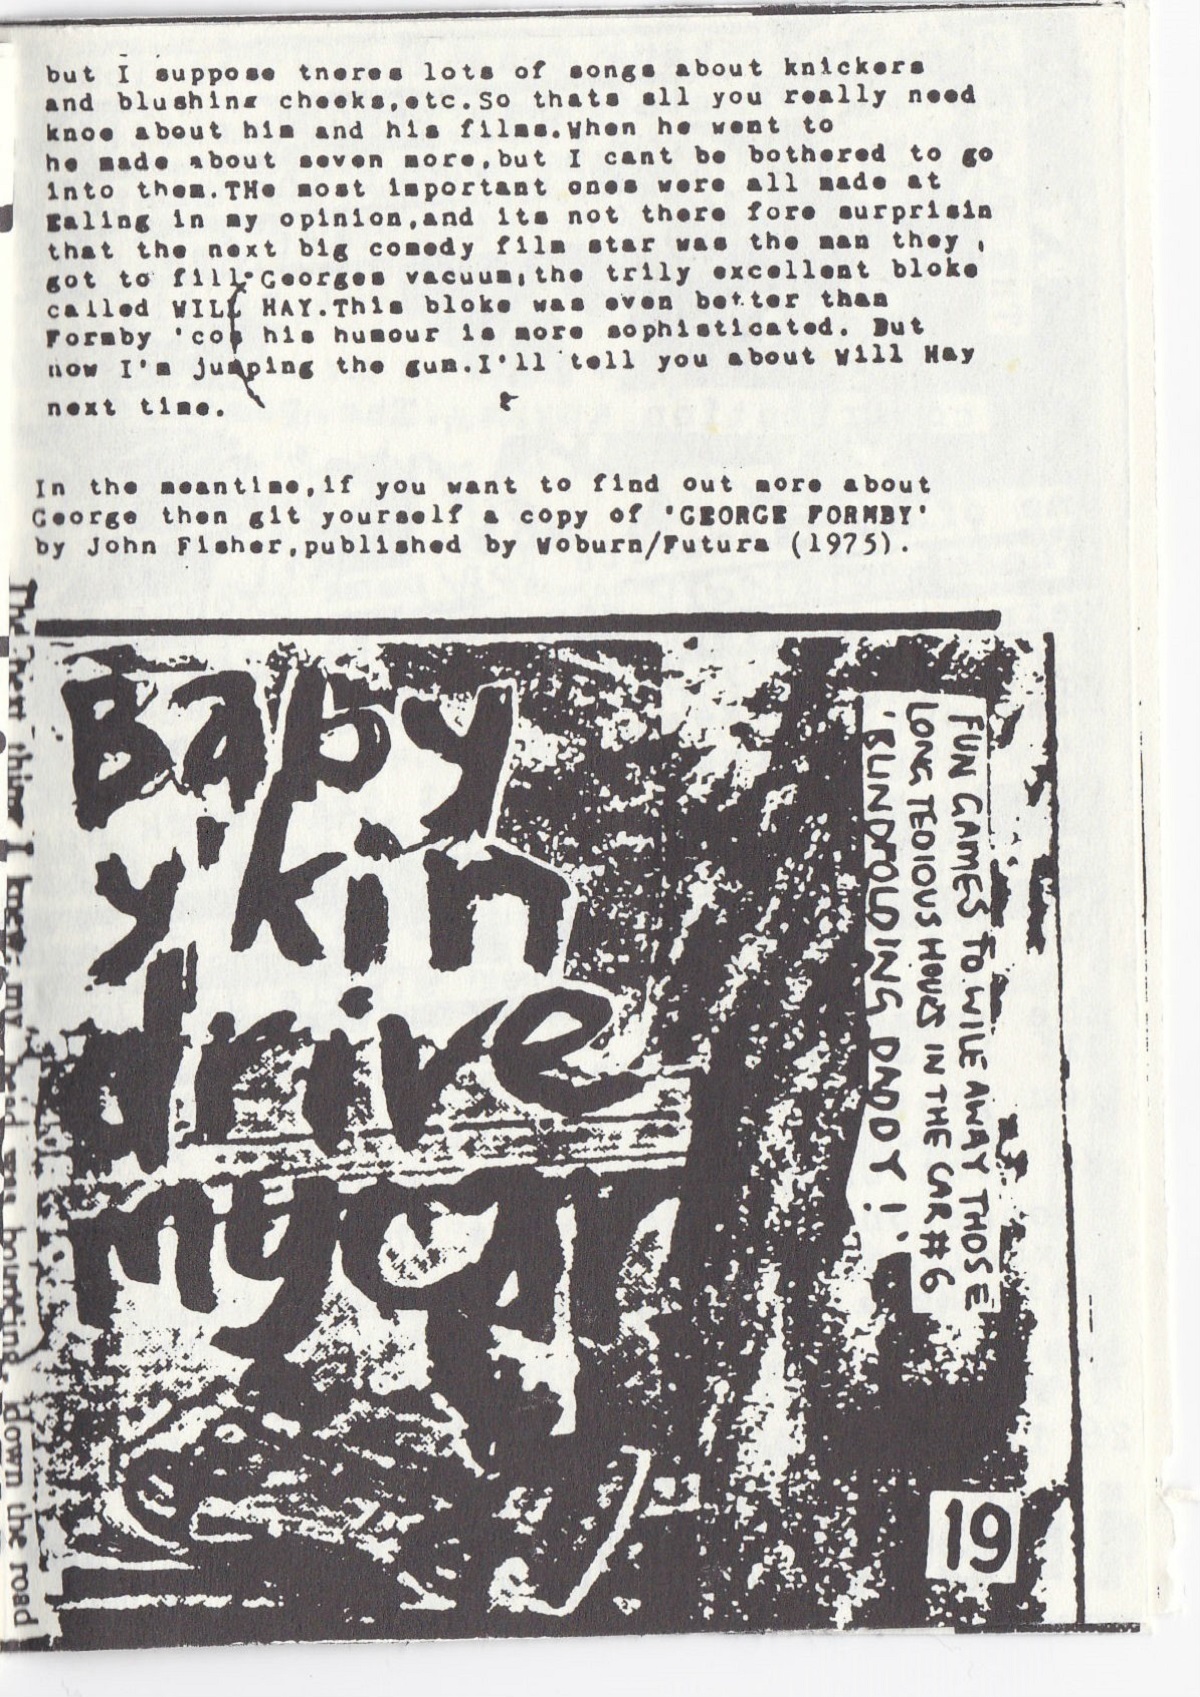 but I suppose tneres lots of songs about knickers
and blushing cheeks,etc.So thats all you really need
knoe about him and his films.When he went to
he made about seven more,but I cant be bothered to go
into them.THe most important ones were all made at
Ealing in my opinion,and its not there fore surprisin
that the next big comedy film star was the man they
got to fill Georges vacuum,the trily excellent bloke
called WILL HAY.This bloke was even better than
Formby 'cos his humour is more sophisticated. But
now I'm jumping the gun.I'll tell you about Will Hay
next time.
In the meantime,if you want to find out more about
George then git yourself a copy of 'GEORGE FORMBY'
by John Fisher,published by Woburn/Futura (1975).
Baby
y'kin
drive
my car
FUN GAMES TO WILE AWAY THOSE
LONG TEDIOUS HOURS IN THE CAR #6
'BLINDFOLDING DADDY!'
19
thing I knew my down the road